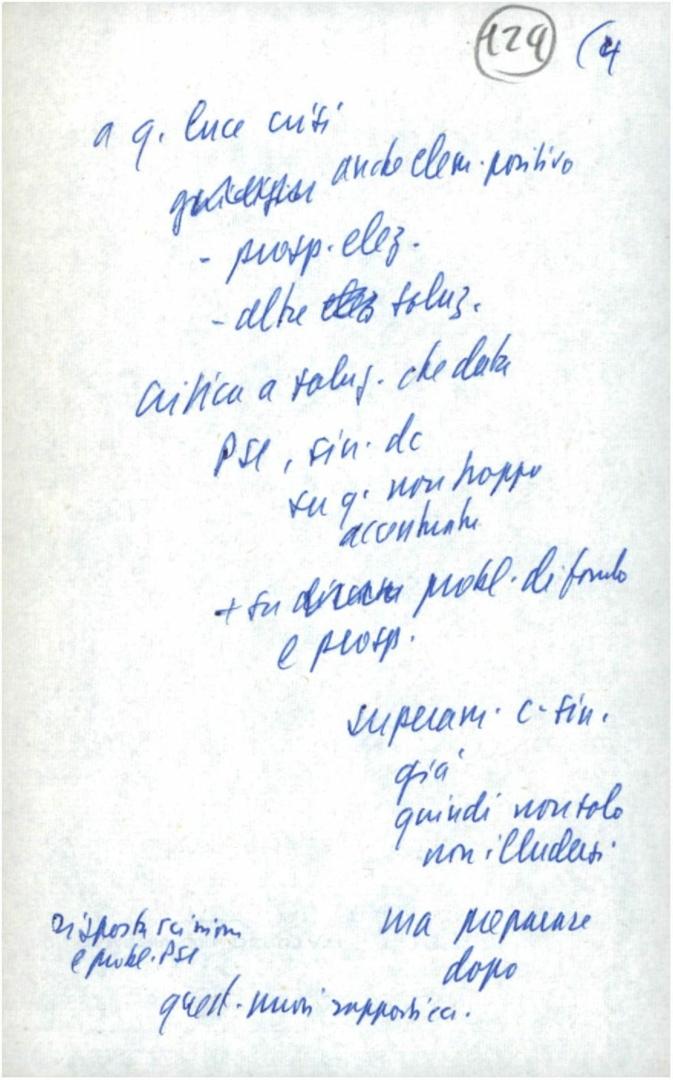 124 (4
a q. luce crisi
anche elem. positivo
- prosp. elez.
- altre soluz.
critica a soluz. che data
PSI, sin. dc
su q. non troppo
accentuate
+ su probl. di fondo
e prosp.
superam. c-sin.
già
quindi non solo
non illudersi
ma preparare
dopo
risposta scissione
e probl. PSI
quest. nuovi rapporti ca.